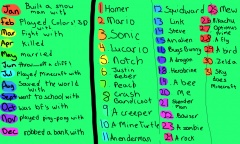 Jan Built a snow man with
Feb Played Colors! 3D with
Mar Fight with
Apr Killed
May married
Jun threw off a cliff
Jul Played Minecraft with
Aug Saved the world with
Sept went to school with
Oct was bf's with
Nov played ping-pong with
Dec robbed a bank with
1 Homer
2 Mario
3 Sonic
4 Lucario
5 Notch
6 Justin Bieber
7 Peach
8 Crash Bandicoot
9 A creeper
10 A Mine Turtle
11 enderman
12 Squidward
13 Link
14 Steve
15 Anuben
16 Bugs Bunny
17 A dragon
18 Herobrine
19 A bee
20 Me
21 Slender Man
22 Bowser
23 A zombie
24 A rock
25 Mewd
26 Pikachu
27 Optimus Prime
28 A fly
29 A bird
30 Zelda
31 Sky does Minecraft